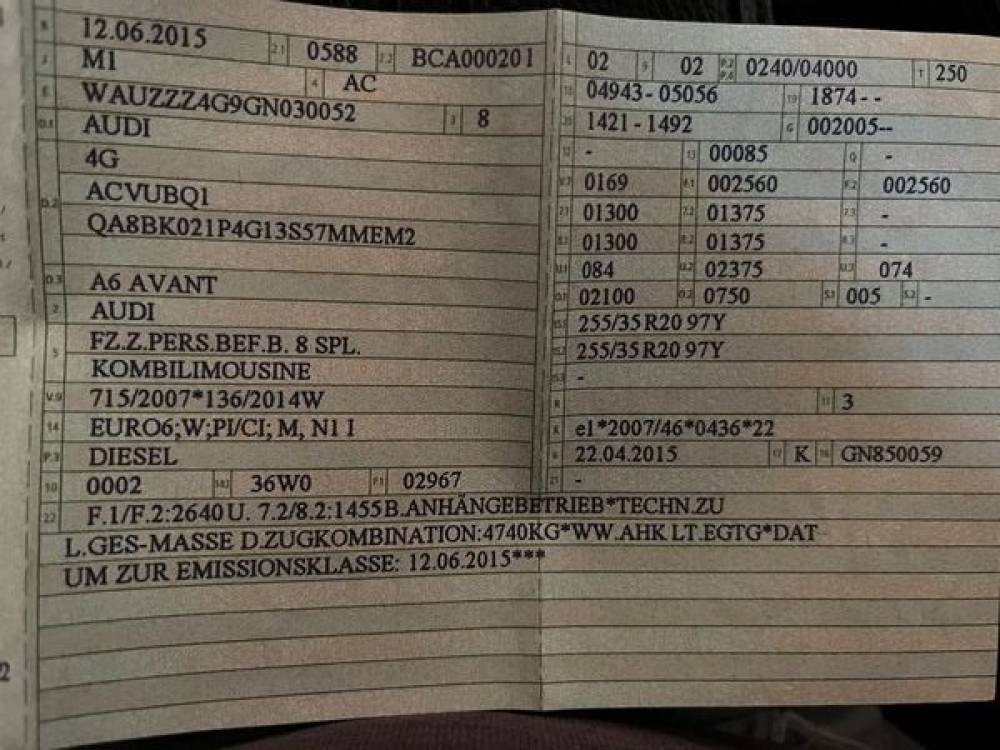 B 12.06.2015 2.1 0588 2.2 BCA000201
J M1 4 AC
E WAUZZZ4G9GN030052 3 8
D.1 AUDI
4G
D.2 ACVUBQ1
QA8BK021P4G13S57MMEM2
D.3 A6 AVANT
2 AUDI
5 FZ.Z.PERS.BEF.B. 8 SPL.
KOMBILIMOUSINE
V.9 715/2007*136/2014W
14 EURO6;W;PI/CI; M, N1 I
P.3 DIESEL
10 0002 14.1 36W0 P.1 02967
22 F.1/F.2:2640 U. 7.2/8.2:1455 B.ANHÄNGEBETRIEB*TECHN.ZU
L.GES-MASSE D.ZUGKOMBINATION:4740KG*WW.AHK LT.EGTG*DAT
UM ZUR EMISSIONSKLASSE: 12.06.2015***
L 02 9 02 P.2 P.4 0240/04000 T 250
18 04943-05056 19 1874--
20 1421-1492 G 002005--
12 - 13 00085 Q -
V.7 0169 F.1 002560 F.2 002560
7.1 01300 7.2 01375 7.3 -
8.1 01300 8.2 01375 8.3 -
U.1 084 U.2 02375 U.3 074
O.1 02100 O.2 0750 S.1 005 S.2 -
15.1 255/35 R20 97Y
15.2 255/35 R20 97Y
15.3 -
R 11 3
K e1*2007/46*0436*22
6 22.04.2015 17 K 16 GN850059
21 -
2